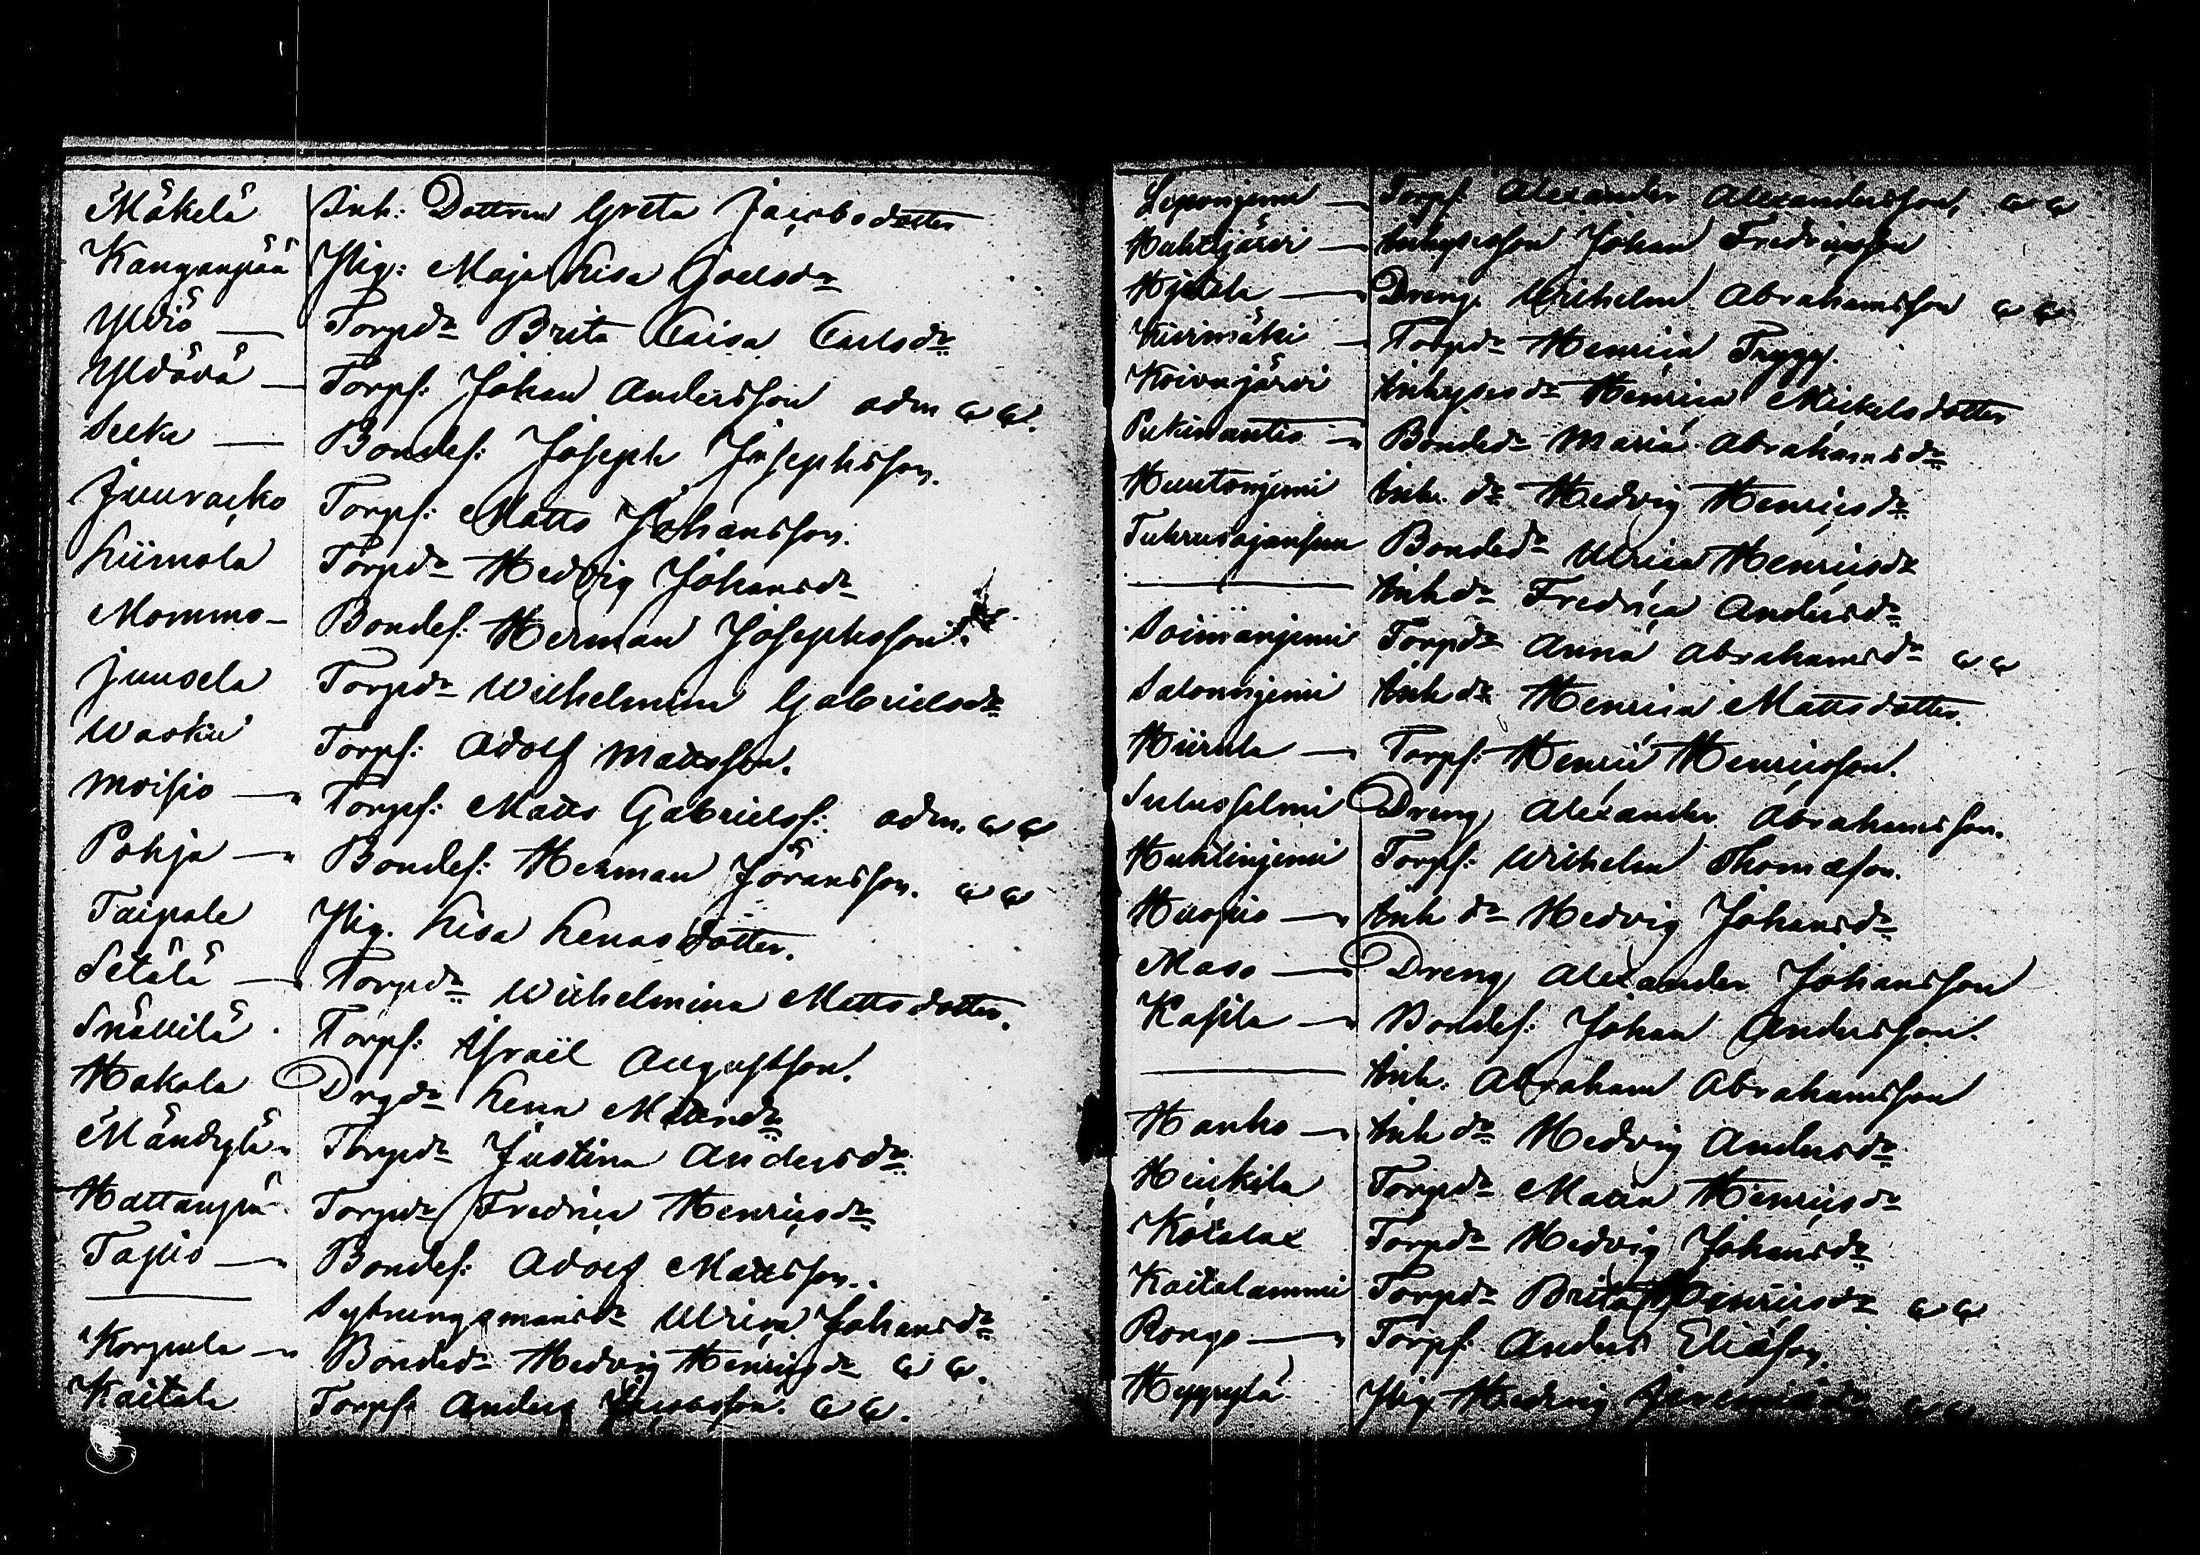 Mäkelä Inh: Dottren Greta Jacobsdotter
Kanganpää Pig: Maja Lisa Joelsdr
Yliö — Torpdr Brita Caisa Carlsdr
Ylövä — Torps: Johan Andersson adm
Seeke — Bondes: Joseph Josephsson.
Juuracko Torps: Matts Johansson.
Liimola Torpdr Hedvig Johansdr
Mommo — Bondes: Herman Josephsson.
Juusela Torpdr Wilhelmina Gabrielsdr
Waskii Torps: Adolf Mattsson.
Moisio — Torps: Matts Gabrielss: adm.
Pohja — Bondes: Herman Jöransson.
Taipale Pig. Lisa Lenasdotter.
Setälä — Torpdr Wilhelmina Mattsdotter.
Snällilä Torps: Israël Augustson.
Hakala Drgdr Lena
Mändylä Torpdr Justina Andersdr
Hattanpä Torpdr Fredrica Henricsdr
Tapio — Bondes: Adolf Mattsson.
— Sytningsmansdr Ulrica Johansdr
Korpula — Bondedr Hedvig Henricsdr
Kaitala Torps: Anders Jacobsson.
Leponjemi — Torps: Alexander Alexandersson,
Hahtijärvi — Inhysesson Johan Fredricsson
Hjelela — Dreng. Wilhelm Abrahamsson
Kiirimäki — Torpdr Henrica Trygg.
Koivujärvi Inhysesdr Henrica Mickelsdotter
— Bondedr Maria Abrahamsdr
Huutonjemi Inh. dr Hedvig Henricsdr
Bondedr Ulrica Henricsdr
— Inh dr Fredrica Andersdr
Soimanjemi Torpdr Anna Abrahamsdr
Salonnjemi Inh dr Henrica Mattsdotter.
Hiirula — Torps: Henric Henricsson.
Sulussalmi Dreng Alexander Abrahamsson.
Huhtinjemi Torps: Wilhelm Thomæson.
Huopio — Inh dr Hedvig Johansdr
Maso — Dreng Alexander Johansson
Kassila — Bondes: Johan Andersson.
— Inh. Abraham Abrahamsson
Hanho — Inh dr Hedvig Andersdr
Heickila Torpdr Maria Henricsdr
Kotalax Torpdr Hedvig Johansdr
Kaitalammi Torpdr Brita Henricsdr
Rongo — Torps: Anders Eliæson.
Heyrylä Pig Hedvig Jeremiædr